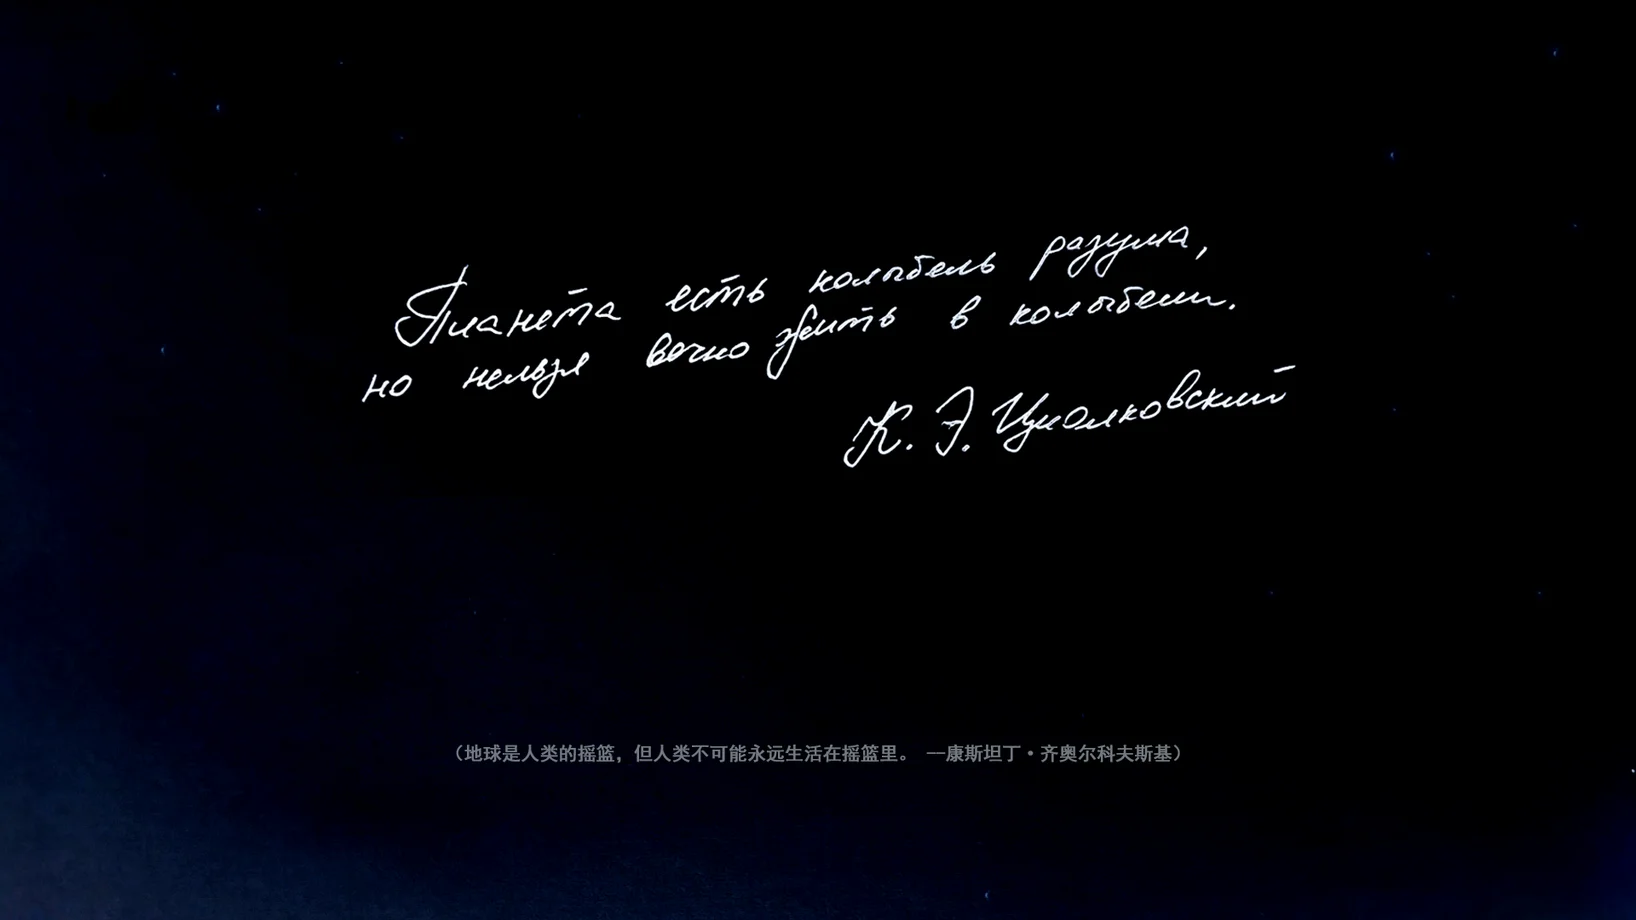 Планета есть колыбель разума,
но нельзя вечно жить в колыбели.
К. Э. Циолковский
（地球是人类的摇篮，但人类不可能永远生活在摇篮里。 —康斯坦丁·齐奥尔科夫斯基）